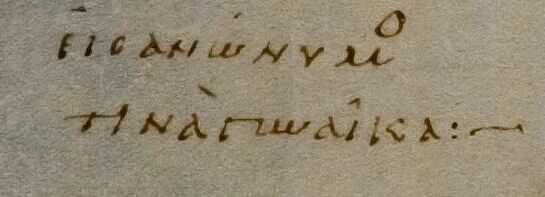 εἰς ἀνώνυμο
τινὰ γυναῖκα:~